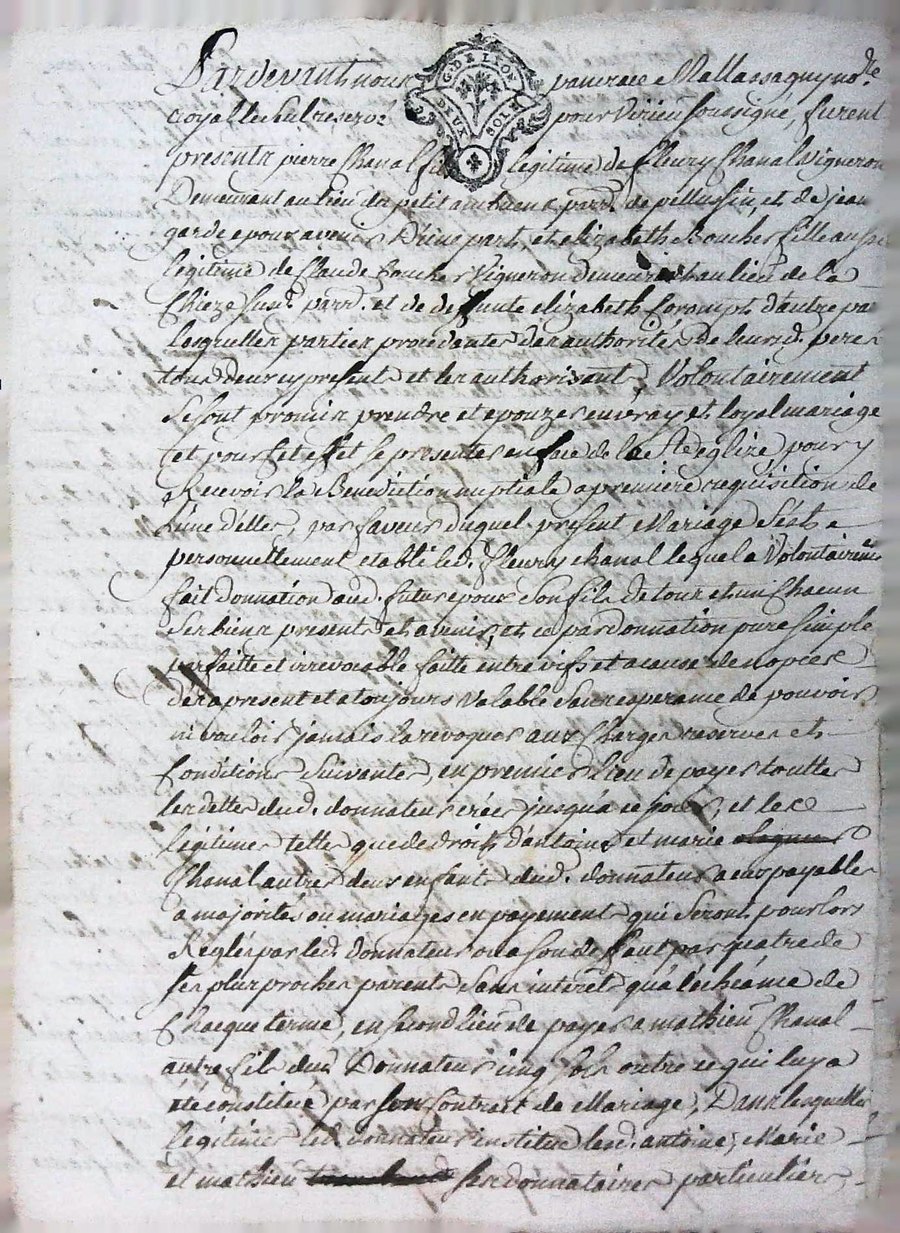 Pardevant nous pancrace Mallassagny no.re
royalle hel reservé pour Virieu soussigné, furent
G. DE LYON
DEUX SOLS
presents pierre Chanal fils légitime de fleury Chanal Vigneron
Demeurant au lieu du petit parr. de pellussin, et de jean
garde epoux avenir D'une part, et elizabeth Boucher fille aussi
légitime de Claude Boucher Vigneron demeurant au lieu de la
Chieze parr. et de deffunte elizabeth Corompt d'autre pa
lesquelles parties procedantes des authorités De leursd. peres
tous deux cy presents et les authorisant, Volontairement
se sont promis prendre et epouzer en vray et loyal mariage
et pour cet effet se presenter en face de la Ste eglize pour y
Recevoir la Benediction nuptiale a premiere requisition de
L'une d'elles, par faveur duquel present Mariage s'est
personnellement etabli led. fleury chanal lequel a Volontairemt
fait donnation aud. futur epoux son fils de tous et un Chacun
ses biens presents et avenir, et ce par donnation pure simple
parfaite et irrevocable faitte entre vifs et a cause de nopces
des a present et a toujours Valable sans esperance de pouvoir
ni vouloir jamais la revoquer aux Charges reserves et
Conditions Suivantes, en premier lieu de payer touttes
les dettes dud. donnateur crées jusqu'a ce jour, et les
légitimes telles que de droit d'antoine et marie
Chanal autres deux enfants dud. donnateur a eux payables
a majorités ou mariages en payements qui seront pour lors
Reglés par led. donnateur ou a son deffaut par quatre de
ses plus proches parents sans interêt qu'a l'echéance de
Chacque terme, en second lieu de payer a mathieu Chanal
autre fils dud. Donnateur cinq sols outre ce qui luy a
été constitué par son Contrat de Mariage, Dans lesquelles
légitimes led. donnateur institue lesd. antoine, Marie
et mathieu ses donnataires particuliers,